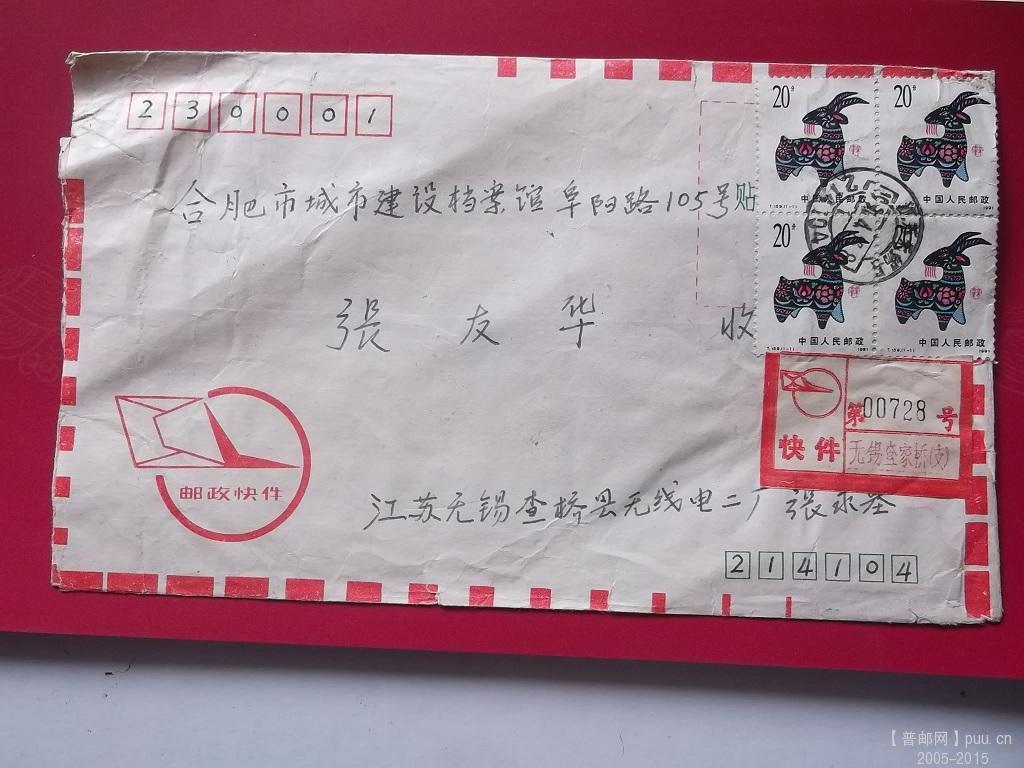 230001
合肥市城市建设档案馆阜阳路105号
贴
張友华 收
20分
20分
中国人民邮政
中国人民邮政
T.159.(1-1) 1991
20分
中国人民邮政
中国人民邮政
T.159.(1-1) 1991
T.159.(1-1) 1991
第00728号
快件
无锡查家桥(支)
邮政快件
江苏无锡查桥县无线电二厂 張永基
214104
【普邮网】puu.cn
2005-2015